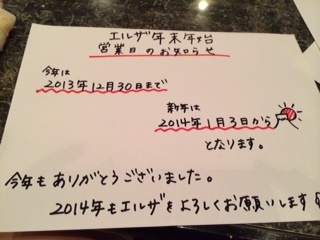 エルザ年末年始
営業日のお知らせ
今年は
2013年12月30日まで
新年は
2014年1月3日から
となります。
今年もありがとうございました。
2014年もエルザをよろしくお願いします